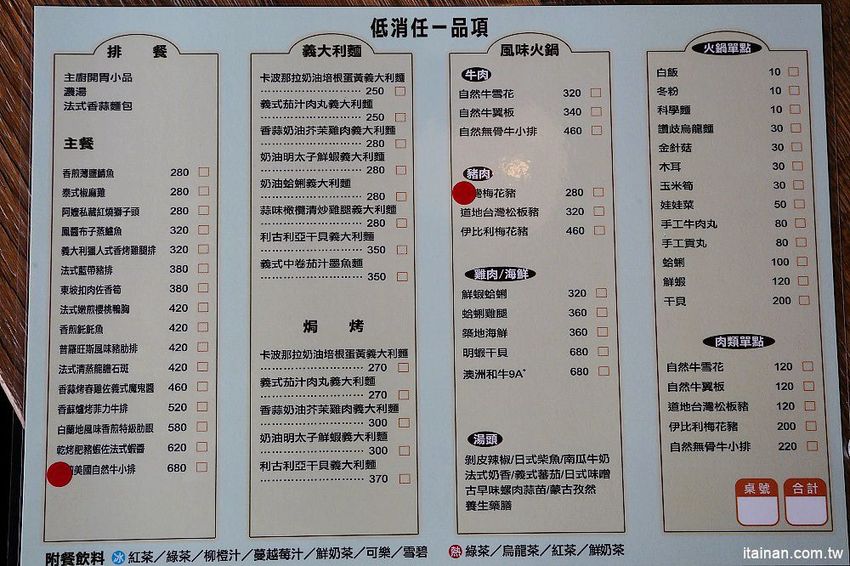 低消任一品項
排 餐
主廚開胃小品
濃湯
法式香蒜麵包
主餐
香煎薄鹽鯖魚 280
泰式椒麻雞 280
阿嬤私藏紅燒獅子頭 280
鳳醬布子蒸鱸魚 320
義大利獵人式香烤雞腿排 320
法式藍帶豬排 380
東坡扣肉佐香筍 380
法式嫩煎櫻桃鴨胸 420
香煎魠魠魚 420
普羅旺斯風味豬肋排 420
法式清蒸龍膽石斑 420
香蒜烤春雞佐義式魔鬼醬 460
香蘇爐烤菲力牛排 520
白蘭地風味香煎特級肋眼 580
乾烤肥豬蝦佐法式蝦醬 620
美國自然牛小排 680
義大利麵
卡波那拉奶油培根蛋黃義大利麵
250
義式茄汁肉丸義大利麵
250
香蒜奶油芥茉雞肉義大利麵
280
奶油明太子鮮蝦義大利麵
280
奶油蛤蜊義大利麵
280
蒜味橄欖清炒雞腿義大利麵
280
利古利亞干貝義大利麵
350
義式中卷茄汁墨魚麵
350
焗 烤
卡波那拉奶油培根蛋黃義大利麵
270
義式茄汁肉丸義大利麵
270
香蒜奶油芥茉雞肉義大利麵
300
奶油明太子鮮蝦義大利麵
300
利古利亞干貝義大利麵
370
風味火鍋
牛肉
自然牛雪花 320
自然牛翼板 340
自然無骨牛小排 460
豬肉
灣梅花豬 280
道地台灣松板豬 320
伊比利梅花豬 460
雞肉/海鮮
鮮蝦蛤蜊 320
蛤蜊雞腿 360
築地海鮮 360
明蝦干貝 680
澳洲和牛9A+ 680
湯頭
剝皮辣椒/日式柴魚/南瓜牛奶
法式奶香/義式蕃茄/日式味噌
古早味螺肉蒜苗/蒙古孜然
養生藥膳
火鍋單點
白飯 10
冬粉 10
科學麵 10
讚歧烏龍麵 30
金針菇 30
木耳 30
玉米筍 30
娃娃菜 50
手工牛肉丸 80
手工貢丸 80
蛤蜊 100
鮮蝦 120
干貝 200
肉類單點
自然牛雪花 120
自然牛翼板 120
道地台灣松板豬 120
伊比利梅花豬 200
自然無骨牛小排 220
桌號 合計
附餐飲料 冰 紅茶／綠茶／柳橙汁／蔓越莓汁／鮮奶茶／可樂／雪碧 熱 綠茶／烏龍茶／紅茶／鮮奶茶
itainan.com.tw